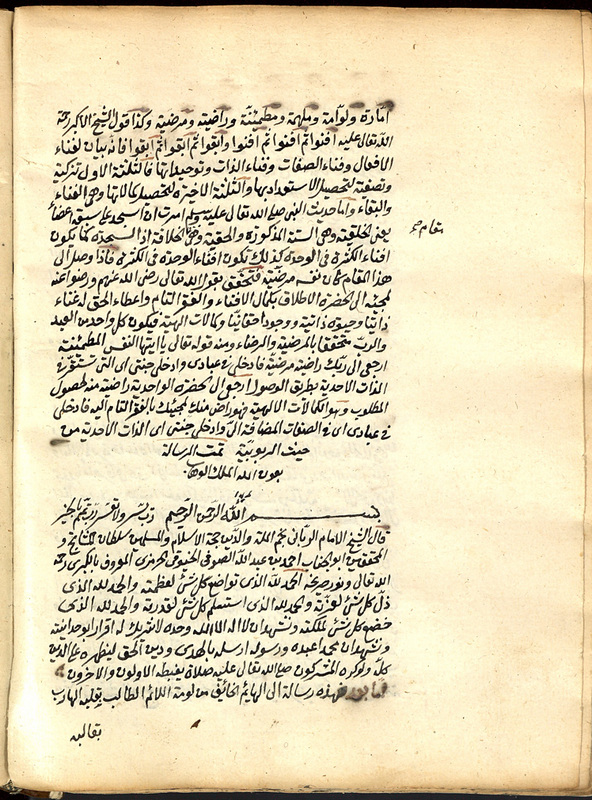 امارة ولوامة وملهمة ومطمئنة وراضية ومرضية وكذا قول الشيخ الاكبر رحمة
الله تعالى عليه افنوا ثم افنوا ثم افنوا وابقوا ثم ابقوا ثم ابقوا فانه بيان لفناء
الافعال وفناء الصفات وفناء الذات وتوحيداتها فالثلثة الاول تزكية
وتصفية لتحصيل الاستعداد بها والثلثة الاخيرة لتحصيل كمالاتها وهي الفناء
والبقاء واما حديث النبى صلى الله تعالى عليه وسلم امرت ان اسجد على سبعة اعضأ
يعنى الخلقية وهي الستة المذكورة والحقية وهي الخلافة اذا السجدة كما يكون
افناء الكثرة في الوحدة كذلك يكون افناء الوحدة في الكثرة فاذا وصل الى
هذا المقام كان نفسه مرضية فتحقق بقوله الله تعالى رضى الله عنهم ورضوا عنه
لمجيئه الى الحضرة الاطلاق بكمال الافناء والفقر التام واعطاء الحق له غناء
ذاتيا وحيوة ذاتية ووجودا حقانيا وكمالات الهية فيكون كل واحد من العبد
والرب متحققا بالمرضية والرضاء ومنه قوله تعالى يا ايتها النفس المطمئنة
ارجعى الى ربك راضية مرضية فادخلى في عبادى وادخلى جنتى اى التى تستقر في
الذات الاحدية بطريق الوصول ارجعى الى الحضرة الواحدية راضية منه لحصول
المطلوب وهو الكمالات الالهية فهو راض منك لمجيئك بالفقر التام اليه فادخلى
في عبادى اى في الصفات المضافة الى وادخلى جنتى اى الذات الاحدية من
حيث الربوبية تمت الرسالة
بعون الله الملك الوهاب
بسم الله الرحمن الرحيم رب يسر ولا تعسر رب تمم بالخير
قال الشيخ الامام الربانى نجم الملة والدين حجة الاسلام والمسلمين سلطان المشايخ و
المحققين ابو الجناب احمد بن عبد الله الصوفى الخيوقى الخوارزمى المعروف بالكبرى رحمة
الله تعالى ونور ضريحه الحمد لله الذى تواضع كل شئ لعظمته والحمد لله الذى
ذل كل شئ لعزته والحمد لله الذى استسلم كل شئ لقدرته والحمد لله الذى
خضع كل شئ لملكته ونشهد ان لا اله الا الله وحده لا شريك له اقرارا بوحدانيته
ونشهد ان محمدا عبده ورسوله ارسله بالهدى ودين الحق ليظهره على الدين
كله ولو كره المشركون صلى الله تعالى عليه صلاة يغبطه الاولون والاخرون
اما بعد فهذه رسالة الى الهايم الخائف من لومة اللائم الطالب بقلبه الهارب
بقالبه
مقام